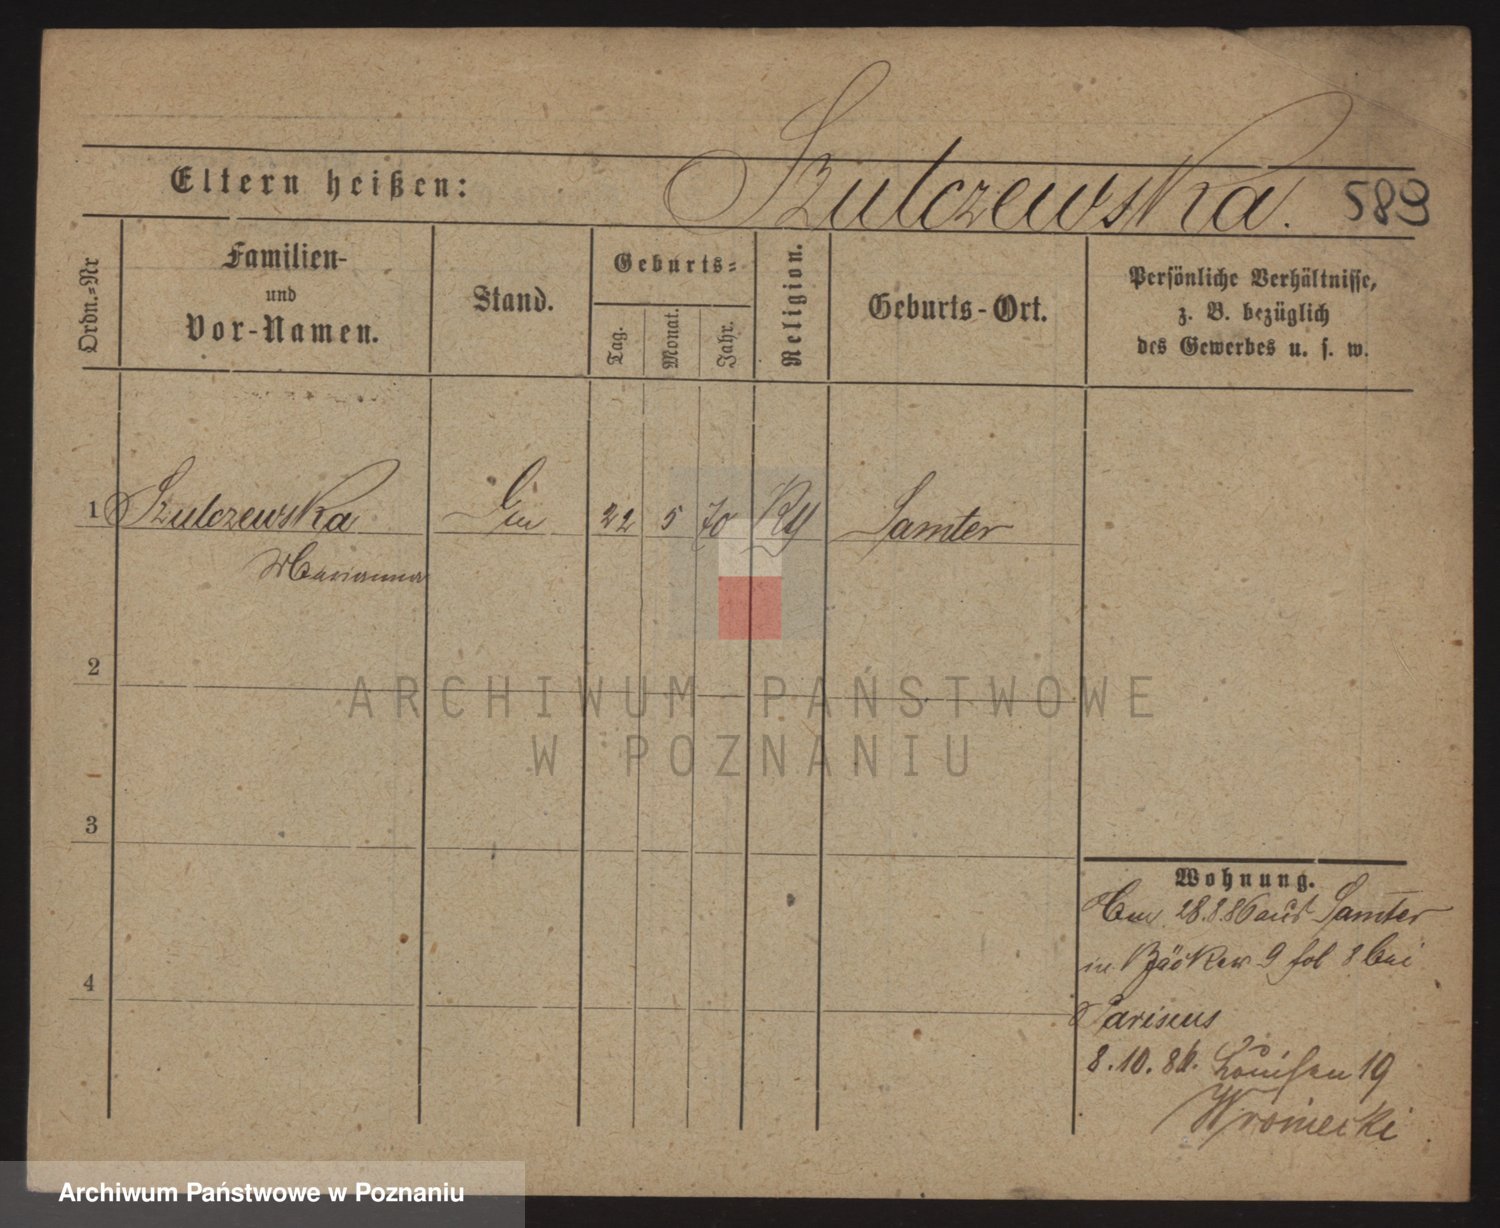 Szulczewska. 589
Eltern heißen:
Ordn.-Nr
Familien-
und
Vor-Namen.
Stand.
Geburts-
Tag.
Monat.
Jahr.
Religion.
Geburts-Ort.
Persönliche Verhältnisse,
z. B. bezüglich
des Gewerbes u. s. w.
1 Szulczewska 22 5 70 Samter
Marianna
2
3
4
ARCHIWUM PAŃSTWOWE
W POZNANIU
Wohnung.
28.8.86 aus Samter
in Bäcker 9 bei
8.10.86. Louisen 19
Wroniecki
Archiwum Państwowe w Poznaniu